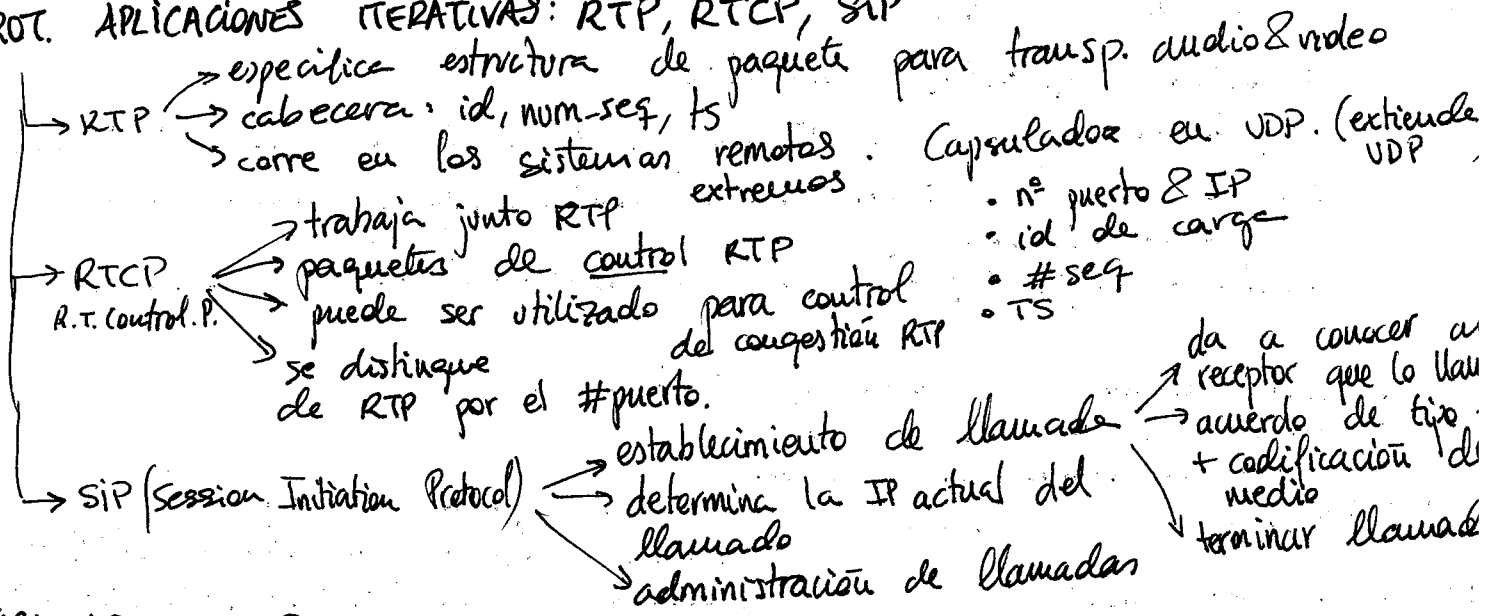 ROT. APLICACIONES ITERATIVAS: RTP, RTCP, SIP
→ RTP → especifica estructura de paquete para transp. audio & video
→ cabecera: id, num-seq, ts
→ corre en los sistemas remotos extremos. Capsulados en UDP. (extiende UDP
• nº puerto & IP
• id de carga
• # seq
• TS
→ RTCP R.T. Control. P. → trabaja junto RTP
→ paquetes de control RTP
→ puede ser utilizado para control del congestión RTP
→ se distingue de RTP por el #puerto.
→ SiP (Session Initiation Protocol) → establecimiento de llamada
→ da a conocer receptor que lo
→ acuerdo de tipo + codificación medio
→ terminar
→ determina la IP actual del llamado
→ administración de llamadas